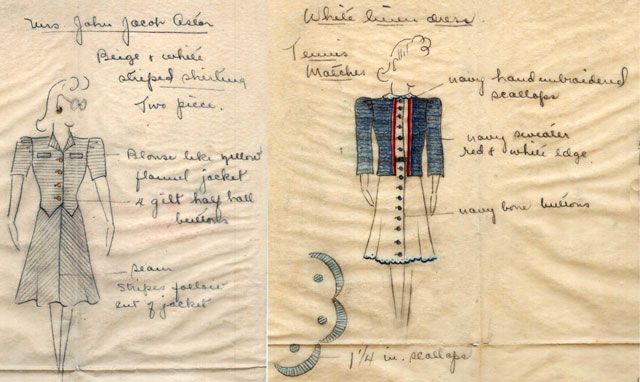 Mrs. John Jacob Astor
Beige & white
striped shirting
Two piece.
Blouse like yellow
flannel jacket
4 gilt half ball
buttons
seam
stripes follow
cut of jacket
White linen dress.
Tennis
Matches
navy hand embroidered
scallops
navy sweater
red & white edge.
navy bone buttons
1 1/4 in. scallops